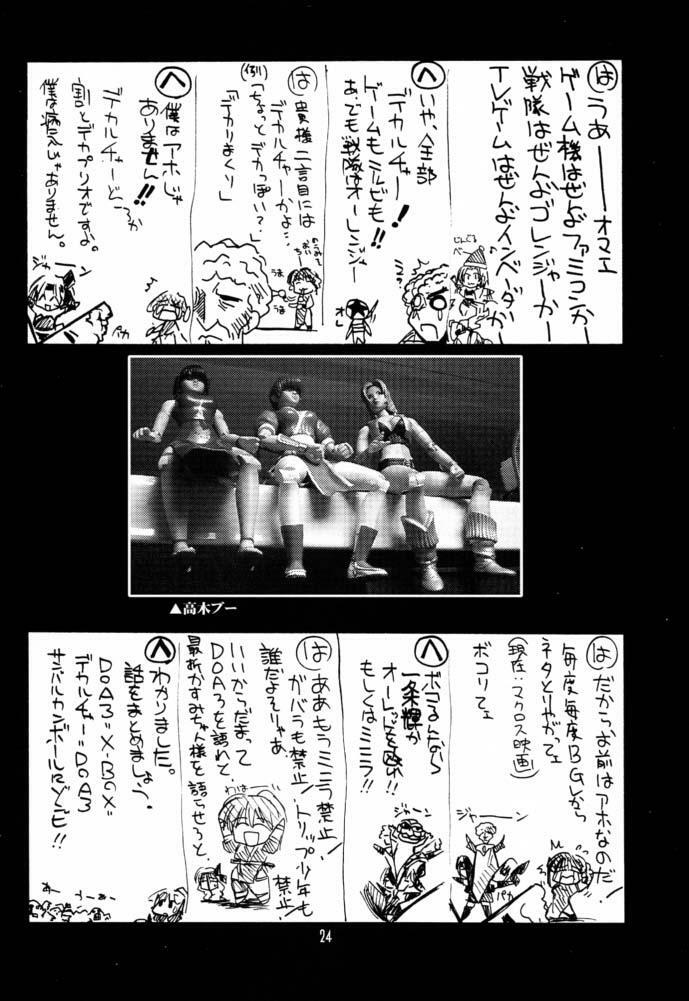 は
うぁーーオマエ
ゲーム機はぜんぶファミコンかー
戦隊はぜんぶゴレンジャーかー
テレゲームはぜんぶインベーダーかー
じんぐる
べー
へ
いや、全部
デカルチャー!
ゲームもミルビも!!
あ、でも戦隊はオーレンジャー
オレ
は
貴様二言目には
デカルチャーかよ…
(例)
「ちょっとデカっぽい?」
「デカりまくり」
のみて
おちー
うま
うま
へ
僕はアホじゃ
ありません!!
デカルチャーどころか
割とデカプリオですよ。
僕は病人じゃありません。
ジャーン
パカ
▲高木ブー
は
だからお前はアホなのだ!
毎度毎度BGMから
ネタとりやがってェ
(現在:マクロス映画)
ボコリてェ
ジャーン
パカ
へ
ボコるんなら
一条輝か
オーレッドを殴れ!!
もしくはミニラ!!
ジャーン
は
ああもうミニラ禁止!
ガバラも禁止!トリップ少年も禁止!
誰だよそりゃあ
いいからだまって
DOA3を語れて、
最新かすみちゃん様を語らせろと
わは
へ
わかりました。
話をまとめましょう。
DOA3=X-BOX=
デカルチャー=DOA3
サンバルカンボールRジビ!!
わー
うーあー
24